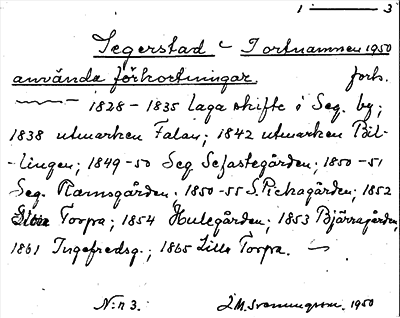 1 ——— 3
Segerstad – Tortnamnen 1950
använda förkortningar forts.
—— 1828 – 1835 laga skifte i Seg. by;
1838 utmarken Falan; 1842 utmarken Bäl-
-lingen; 1849-50 Seg Sefastegården; 1850-51
Seg. Ramsgården; 1850-55 S. Pickagården; 1852
Torpa; 1854 Hulegården; 1853 Bjärragården,
1861 Ingefredsg.; 1865 Lilla Torpa. —
N:r 3. 1950